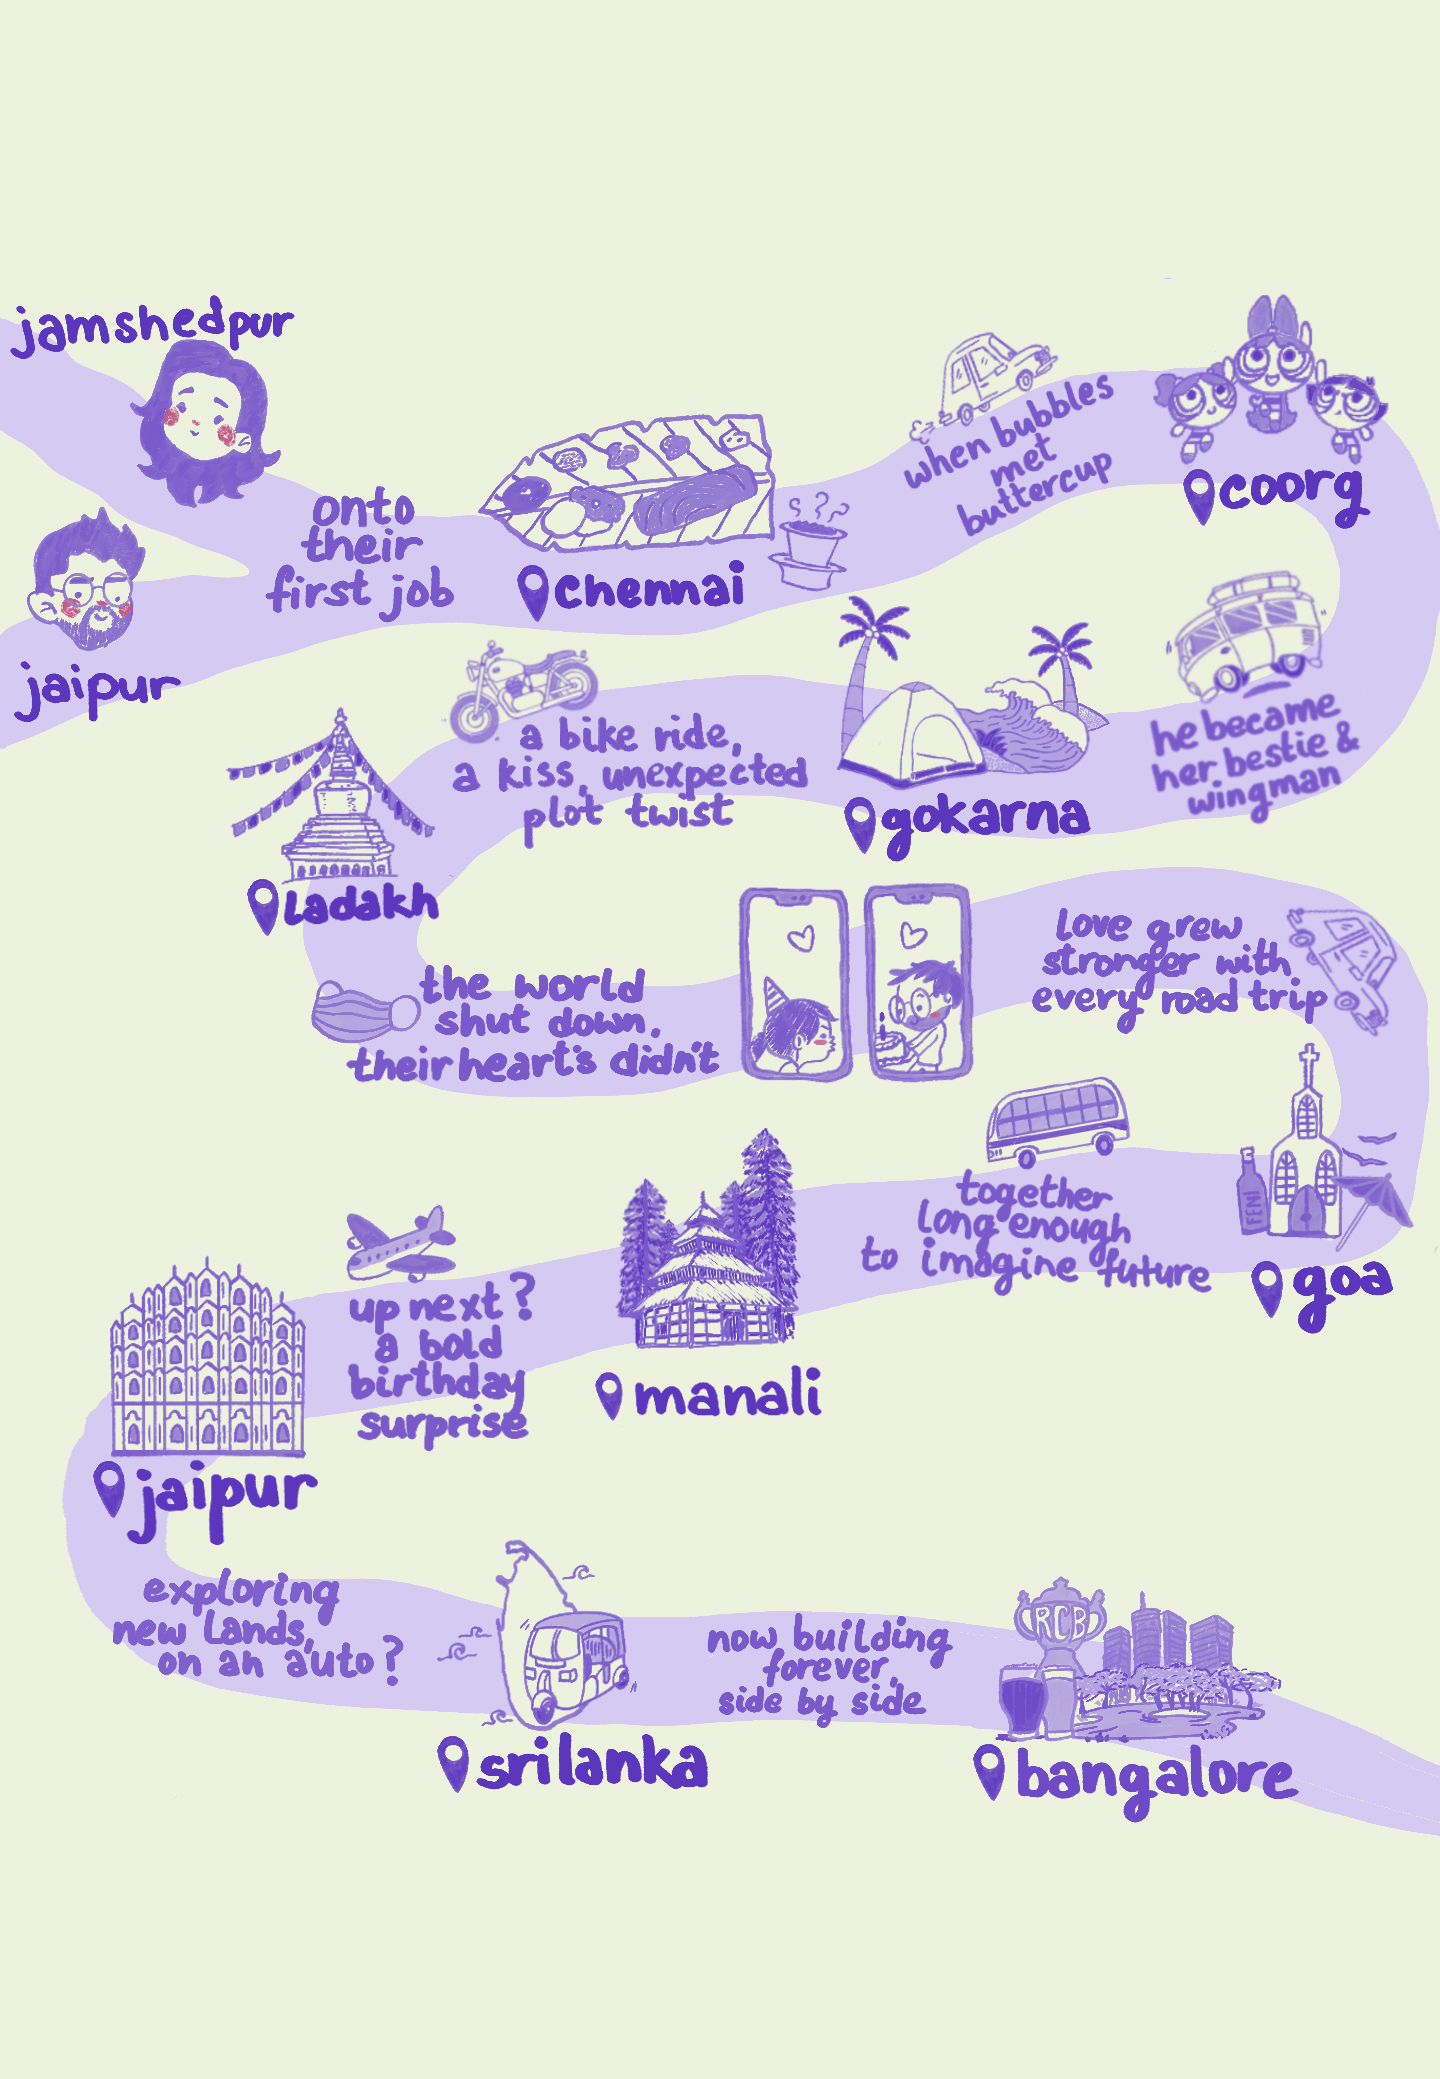 jamshedpur
jaipur
onto
their
first job
chennai
when bubbles
met
buttercup
coorg
he became
her bestie &
wingman
gokarna
a bike ride,
a kiss, unexpected
plot twist
ladakh
the world
shut down.
their heart's didn't
love grew
stronger with
every road trip
FENI
goa
together
long enough
to imagine future
manali
up next?
a bold
birthday
surprise
jaipur
exploring
new lands,
on an auto?
sri lanka
now building
forever,
side by side
RCB
bangalore